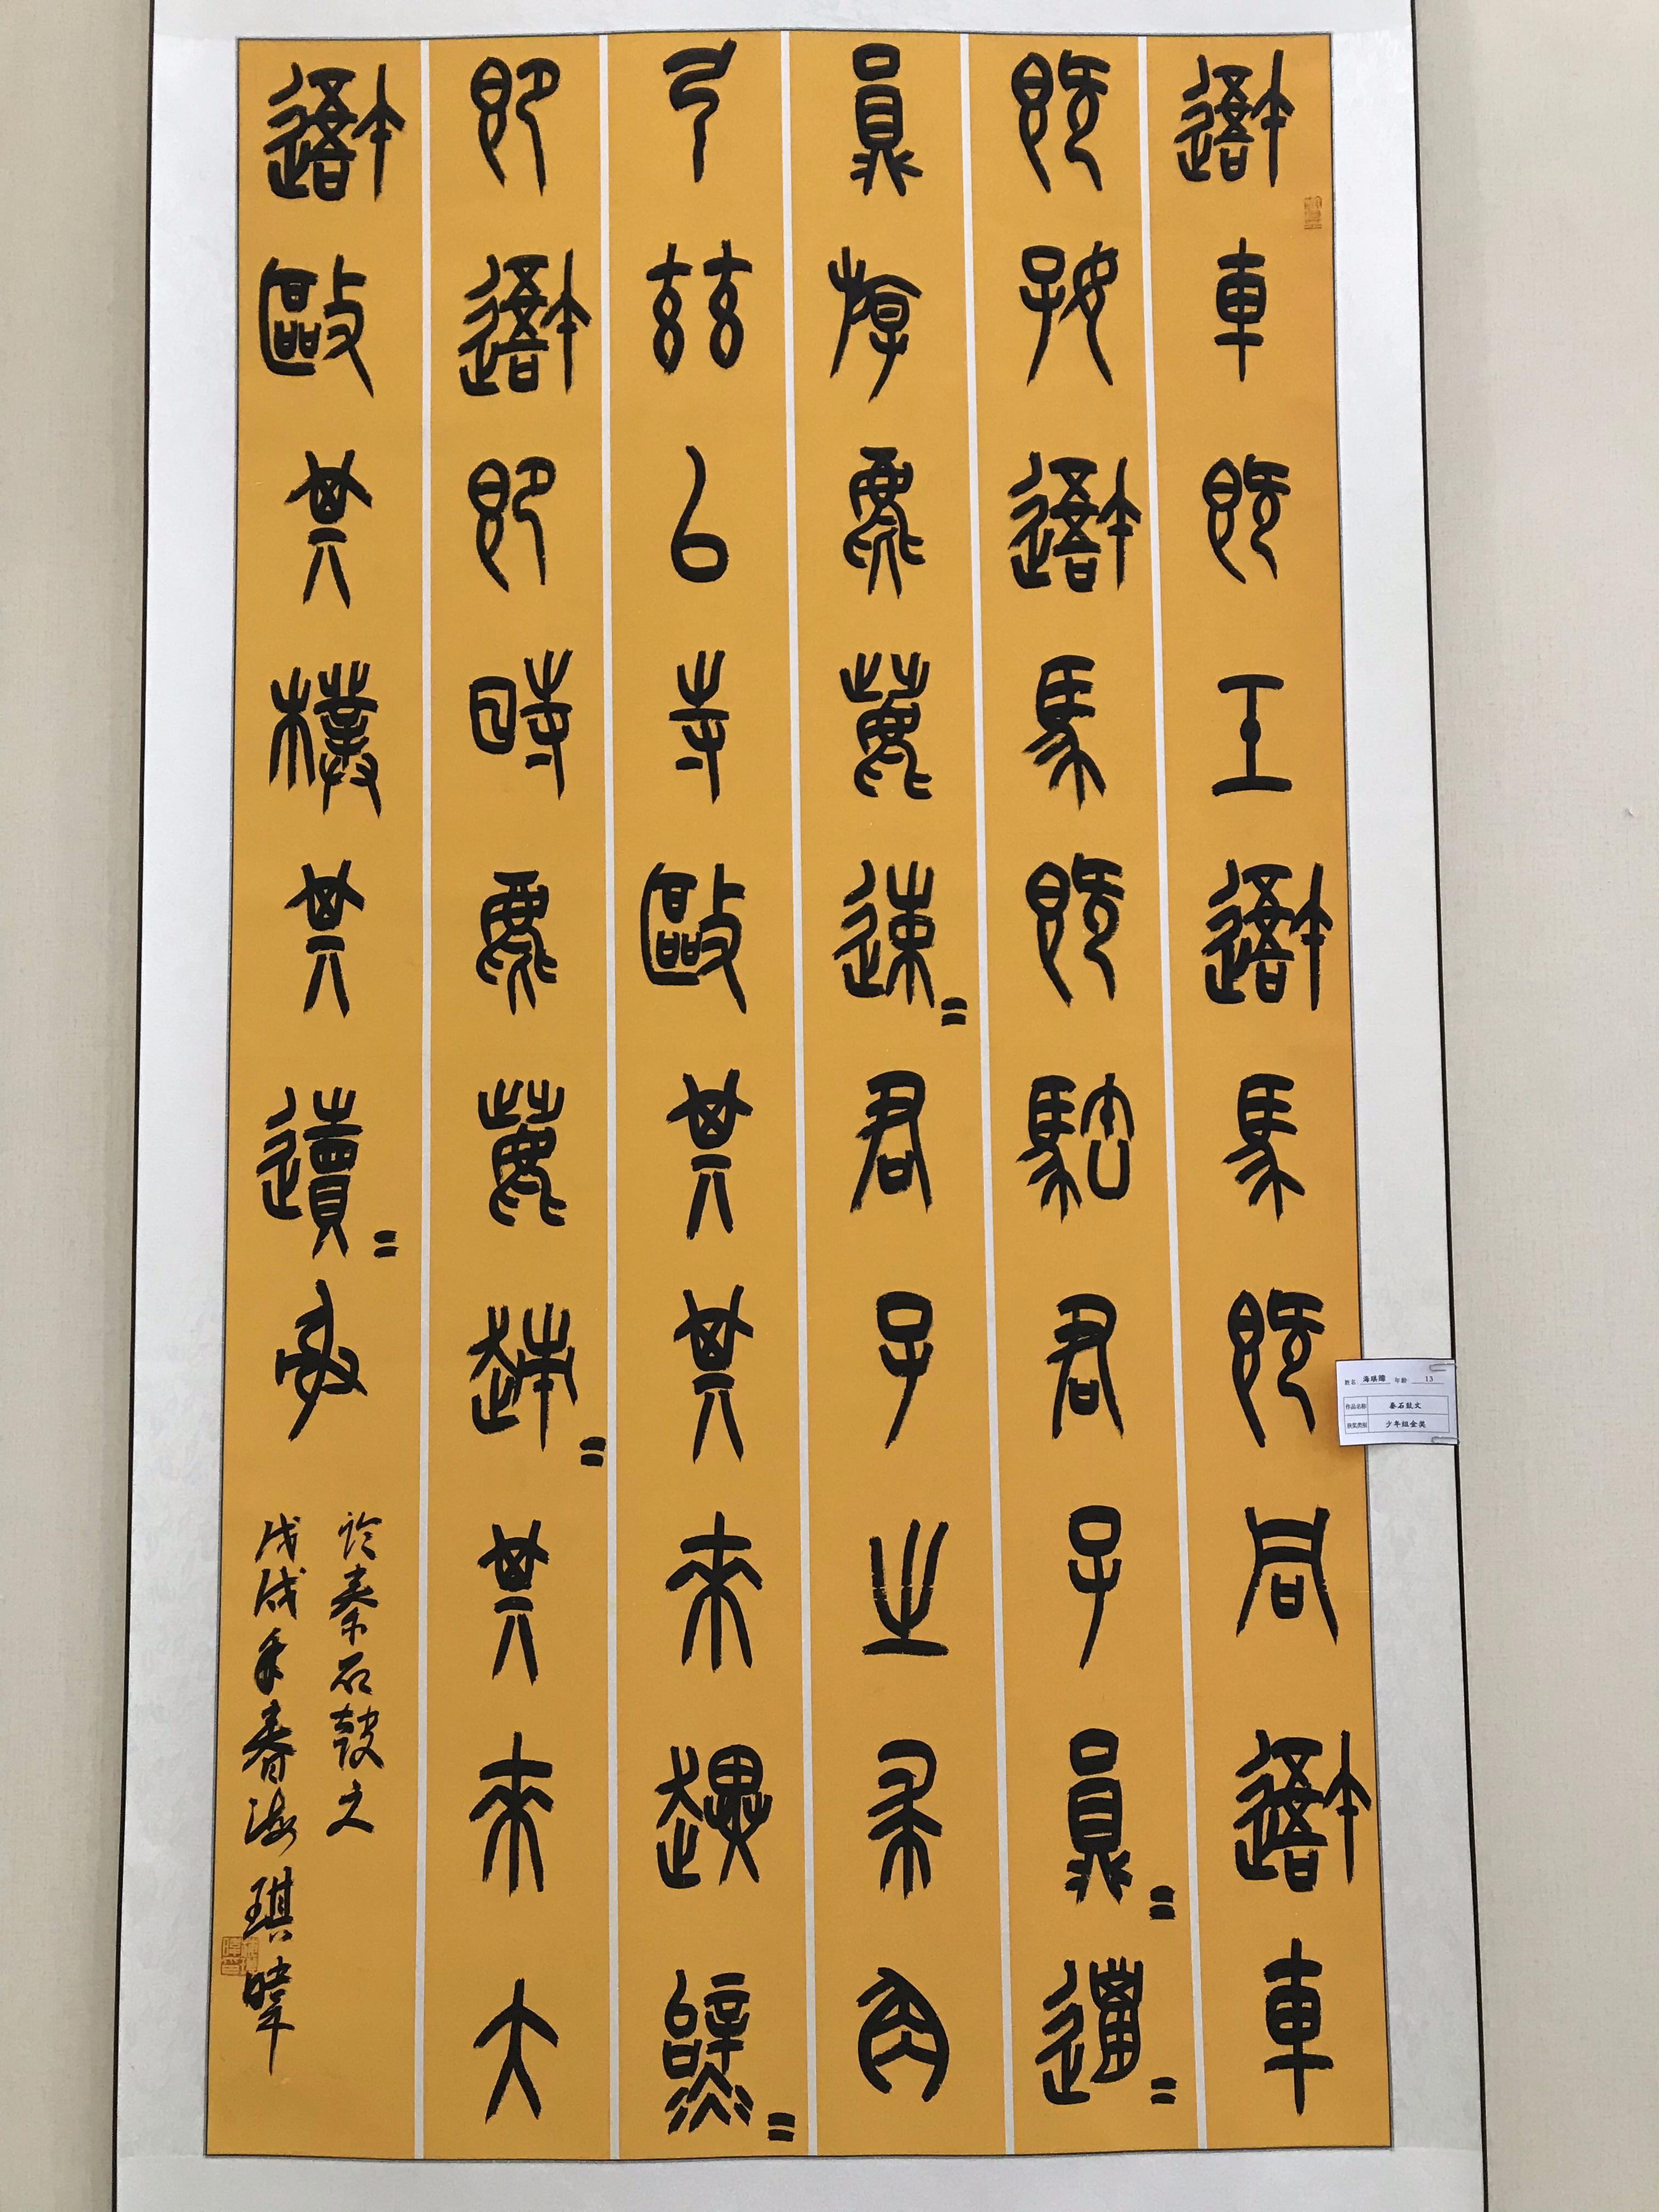 避車既工避馬既同避車
既好避馬既駘君子員=邋=
員斿麀鹿速=君子之求角
弓茲以寺敺其其來趩=
即避即時麀鹿趚=其來大
避敺其樸其=射
临秦石鼓文
戊戌年春海琪暐
姓名 海琪暐 年龄 13
作品名称 秦石鼓文
获奖类别 少年组金奖